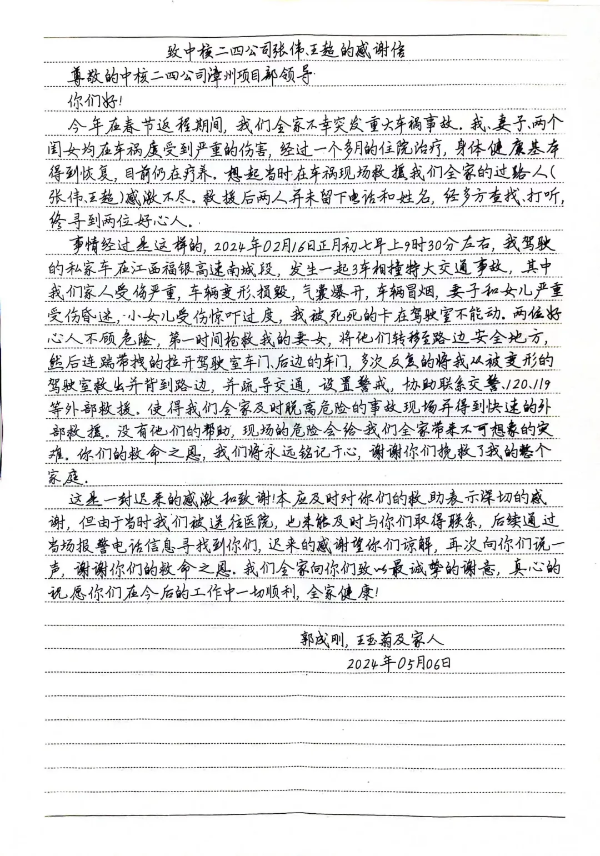 致中核二四公司张伟、王超的感谢信
尊敬的中核二四公司漳州项目部领导
你们好!
今年在春节返程期间,我们全家不幸突发重大车祸事故。我、妻子、两个
闺女均在车祸虔受到严重的伤害,经过一个多月的住院治疗,身体健康基本
得到恢复,目前仍在疗养。想起当时在车祸现场救援我们全家的过路人(
张伟、王超)感激不尽。救援后两人并未留下电话和姓名,经多方查找、打听,
终寻到两位好心人。
事情经过是这样的,2024年02月16日正月初七早上9时30分左右,我驾驶
的私家车在江西福银高速南城段,发生一起3车相撞特大交通事故,其中
我们家人受伤严重,车辆变形、损毁,气囊爆开,车辆冒烟,妻子和女儿严重
受伤昏迷,小女儿受伤惊吓过度,我被死死的卡在驾驶室不能动。两位好
心人不顾危险,第一时间抢救我的妻女,将他们转移至路边安全地方,
然后连踹带拽的拉开驾驶室车门、后边的车门,多次反复的将我从被变形的
驾驶室救出并背到路边,并疏导交通,设置警戒,协助联系交警、120、119
等外部救援。使得我们全家及时脱离危险的事故现场并得到快速的外
部救援。没有他们的帮助,现场的危险会给我们全家带来不可想象的灾
难。你们的救命之恩,我们将永远铭记于心,谢谢你们挽救了我的整个
家庭。
这是一封迟来的感激和致谢!本应及时对你们的救助表示深切的感
谢,但由于当时我们被送往医院,也未能及时与你们取得联系,后续通过
当场报警电话信息寻找到你们,迟来的感谢望你们谅解,再次向你们说一
声,谢谢你们的救命之恩。我们全家向你们致以最诚挚的谢意,真心的
祝愿你们在今后的工作中一切顺利,全家健康!
郭成刚,王玉菊及家人
2024年05月06日